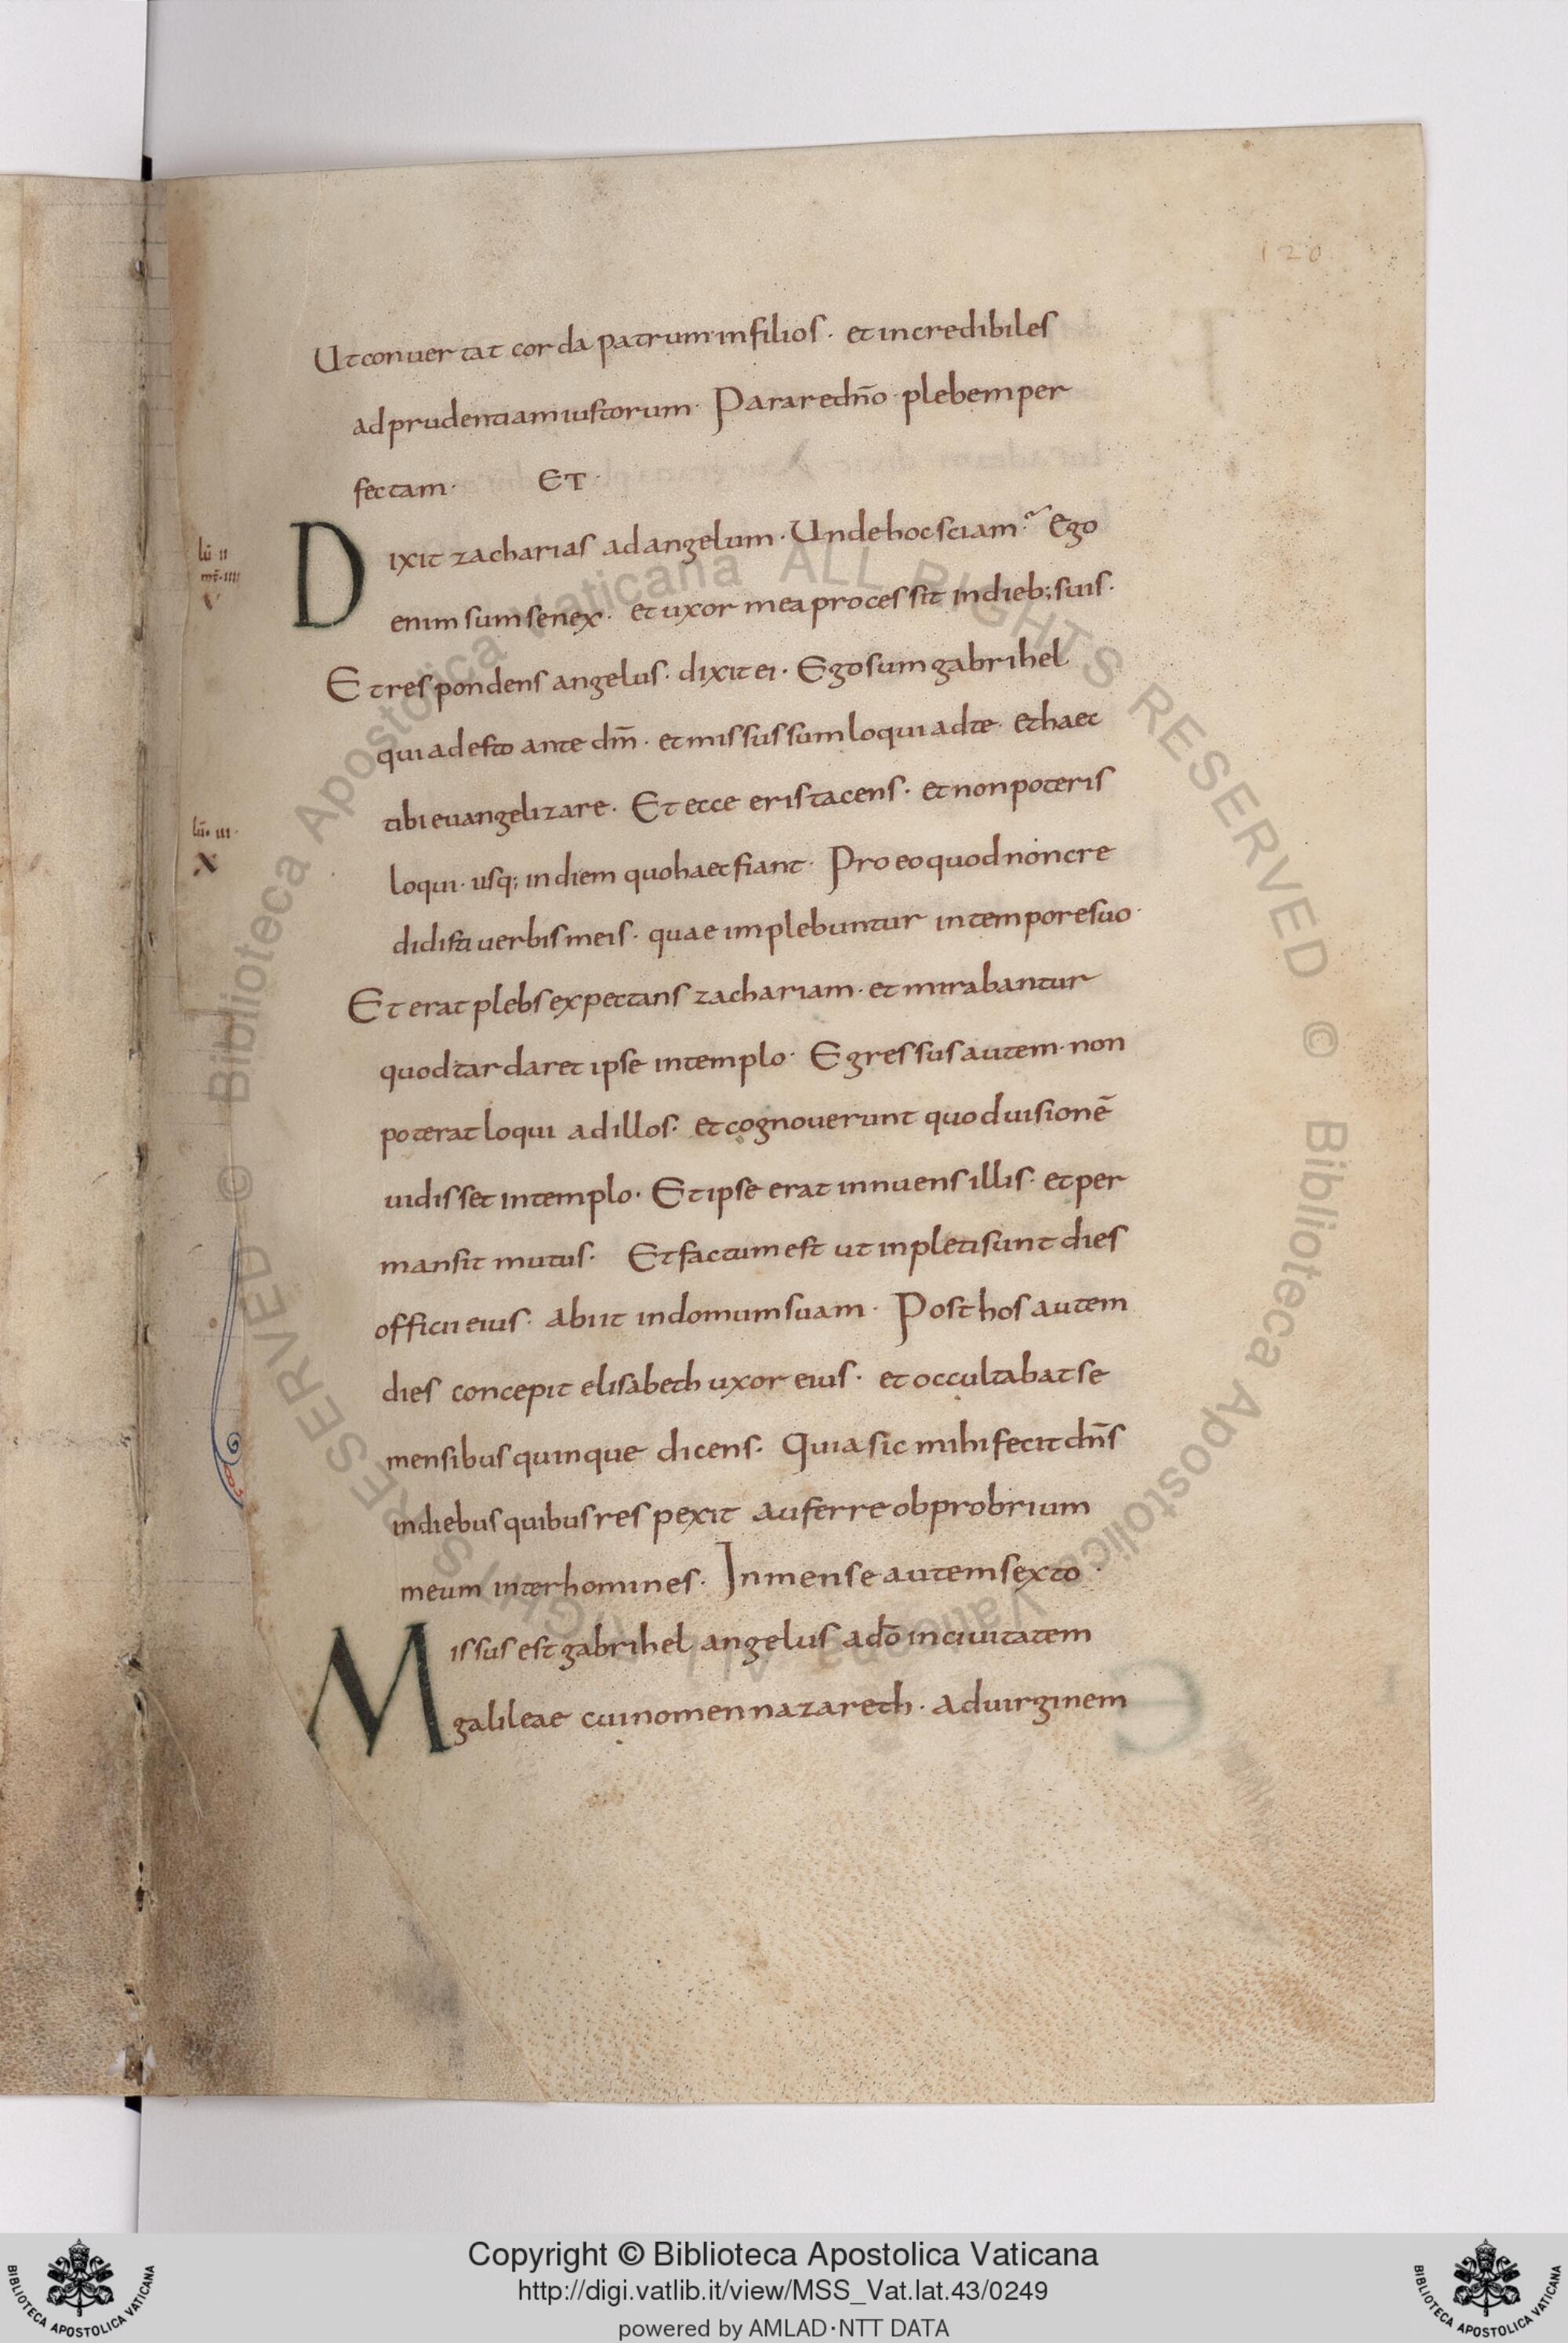 120
Ut conuertat corda patrum in filios · et incredibiles
ad prudentiam iustorum · Parare dn̄o plebem per
fectam · ET ·
lū II
mr̄ · IIII
V
Dixit zacharias ad angelum · Unde hoc sciam? Ego
enim sum senex · et uxor mea processit in dieb; suis ·
Et respondens angelus · dixit ei · Ego sum gabrihel
qui adesto ante dm̄ · et missus sum loqui ad te · et haec
tibi euangelizare · Et ecce eris tacens · et non poteris
lū · III ·
X
loqui · usq; in diem quo haec fiant · Pro eo quod non cre
didisti uerbis meis · quae implebuntur in tempore suo ·
Et erat plebs expectans zachariam · et mirabantur
quod tardaret ipse in templo · Egressus autem · non
poterat loqui ad illos · et cognouerunt quod uisionē
uidisset in templo · Et ipse erat innuens illis · et per
mansit mutus · Et factum est ut inpleti sunt dies
officii eius · abiit in domum suam · Post hos autem
dies concepit elisabeth uxor eius · et occultabat se
mensibus quinque dicens · Quia sic mihi fecit dn̄s
in diebus quibus respexit auferre obprobrium
meum inter homines · In mense autem sexto ·
Missus est gabrihel angelus a dō in ciuitatem
galileae cui nomen nazareth · ad uirginem
© Biblioteca Apostolica Vaticana ALL RIGHTS RESERVED © Biblioteca Apostolica Vaticana ALL RIGHTS RESERVED
Copyright © Biblioteca Apostolica Vaticana
http://digi.vatlib.it/view/MSS_Vat.lat.43/0249
powered by AMLAD·NTT DATA
BIBLIOTECA APOSTOLICA VATICANA
BIBLIOTECA APOSTOLICA VATICANA